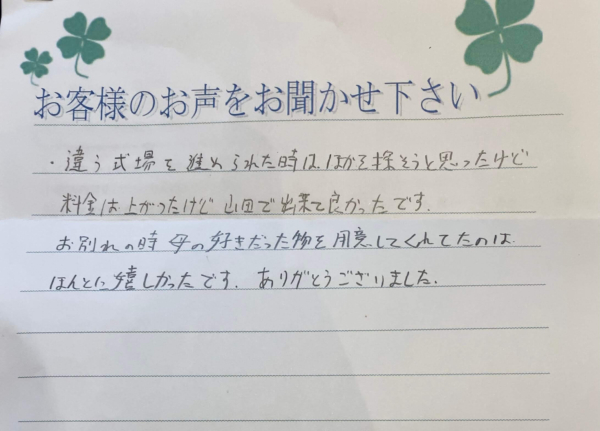 お客様のお声をお聞かせ下さい
・違う式場を進められた時は、ほかを探そうと思ったけど
料金は上がったけど山田で出来て良かったです.
お別れの時 母の好きだった物を用意してくれてたのは
ほんとに嬉しかったです. ありがとうございました.